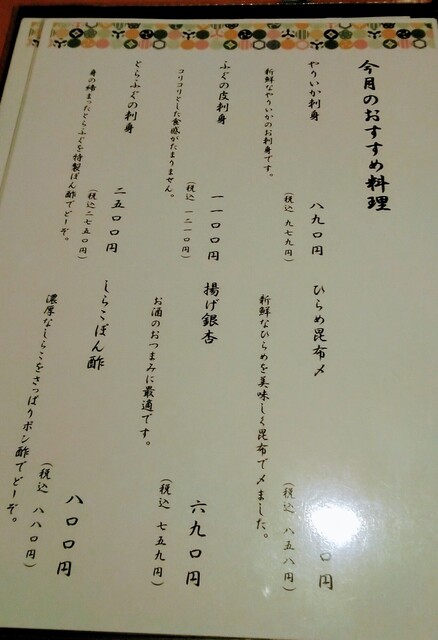 今月のおすすめ料理
やりいか刺身
新鮮なやりいかのお刺身です。
八九〇円
(税込 九七九円)
ふぐの皮刺身
コリコリとした食感がたまりません。
一一〇〇円
(税込 一二一〇円)
とらふぐの刺身
身の締まったとらふぐを特製ぽん酢でどーぞ。
二五〇〇円
(税込 二七五〇円)
ひらめ昆布〆
新鮮なひらめを美味しく昆布で〆ました。
〇円
(税込 八五八円)
揚げ銀杏
お酒のおつまみに最適です。
六九〇円
(税込 七五九円)
しらこぽん酢
濃厚なしらこをさっぱりポン酢でどーぞ。
八〇〇円
(税込 八八〇円)